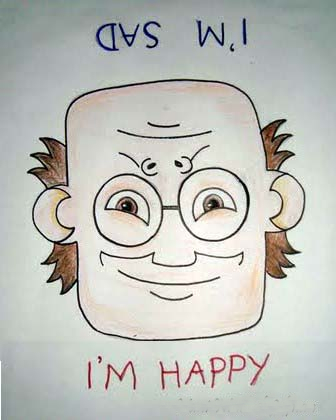 I'M SAD
I'M HAPPY